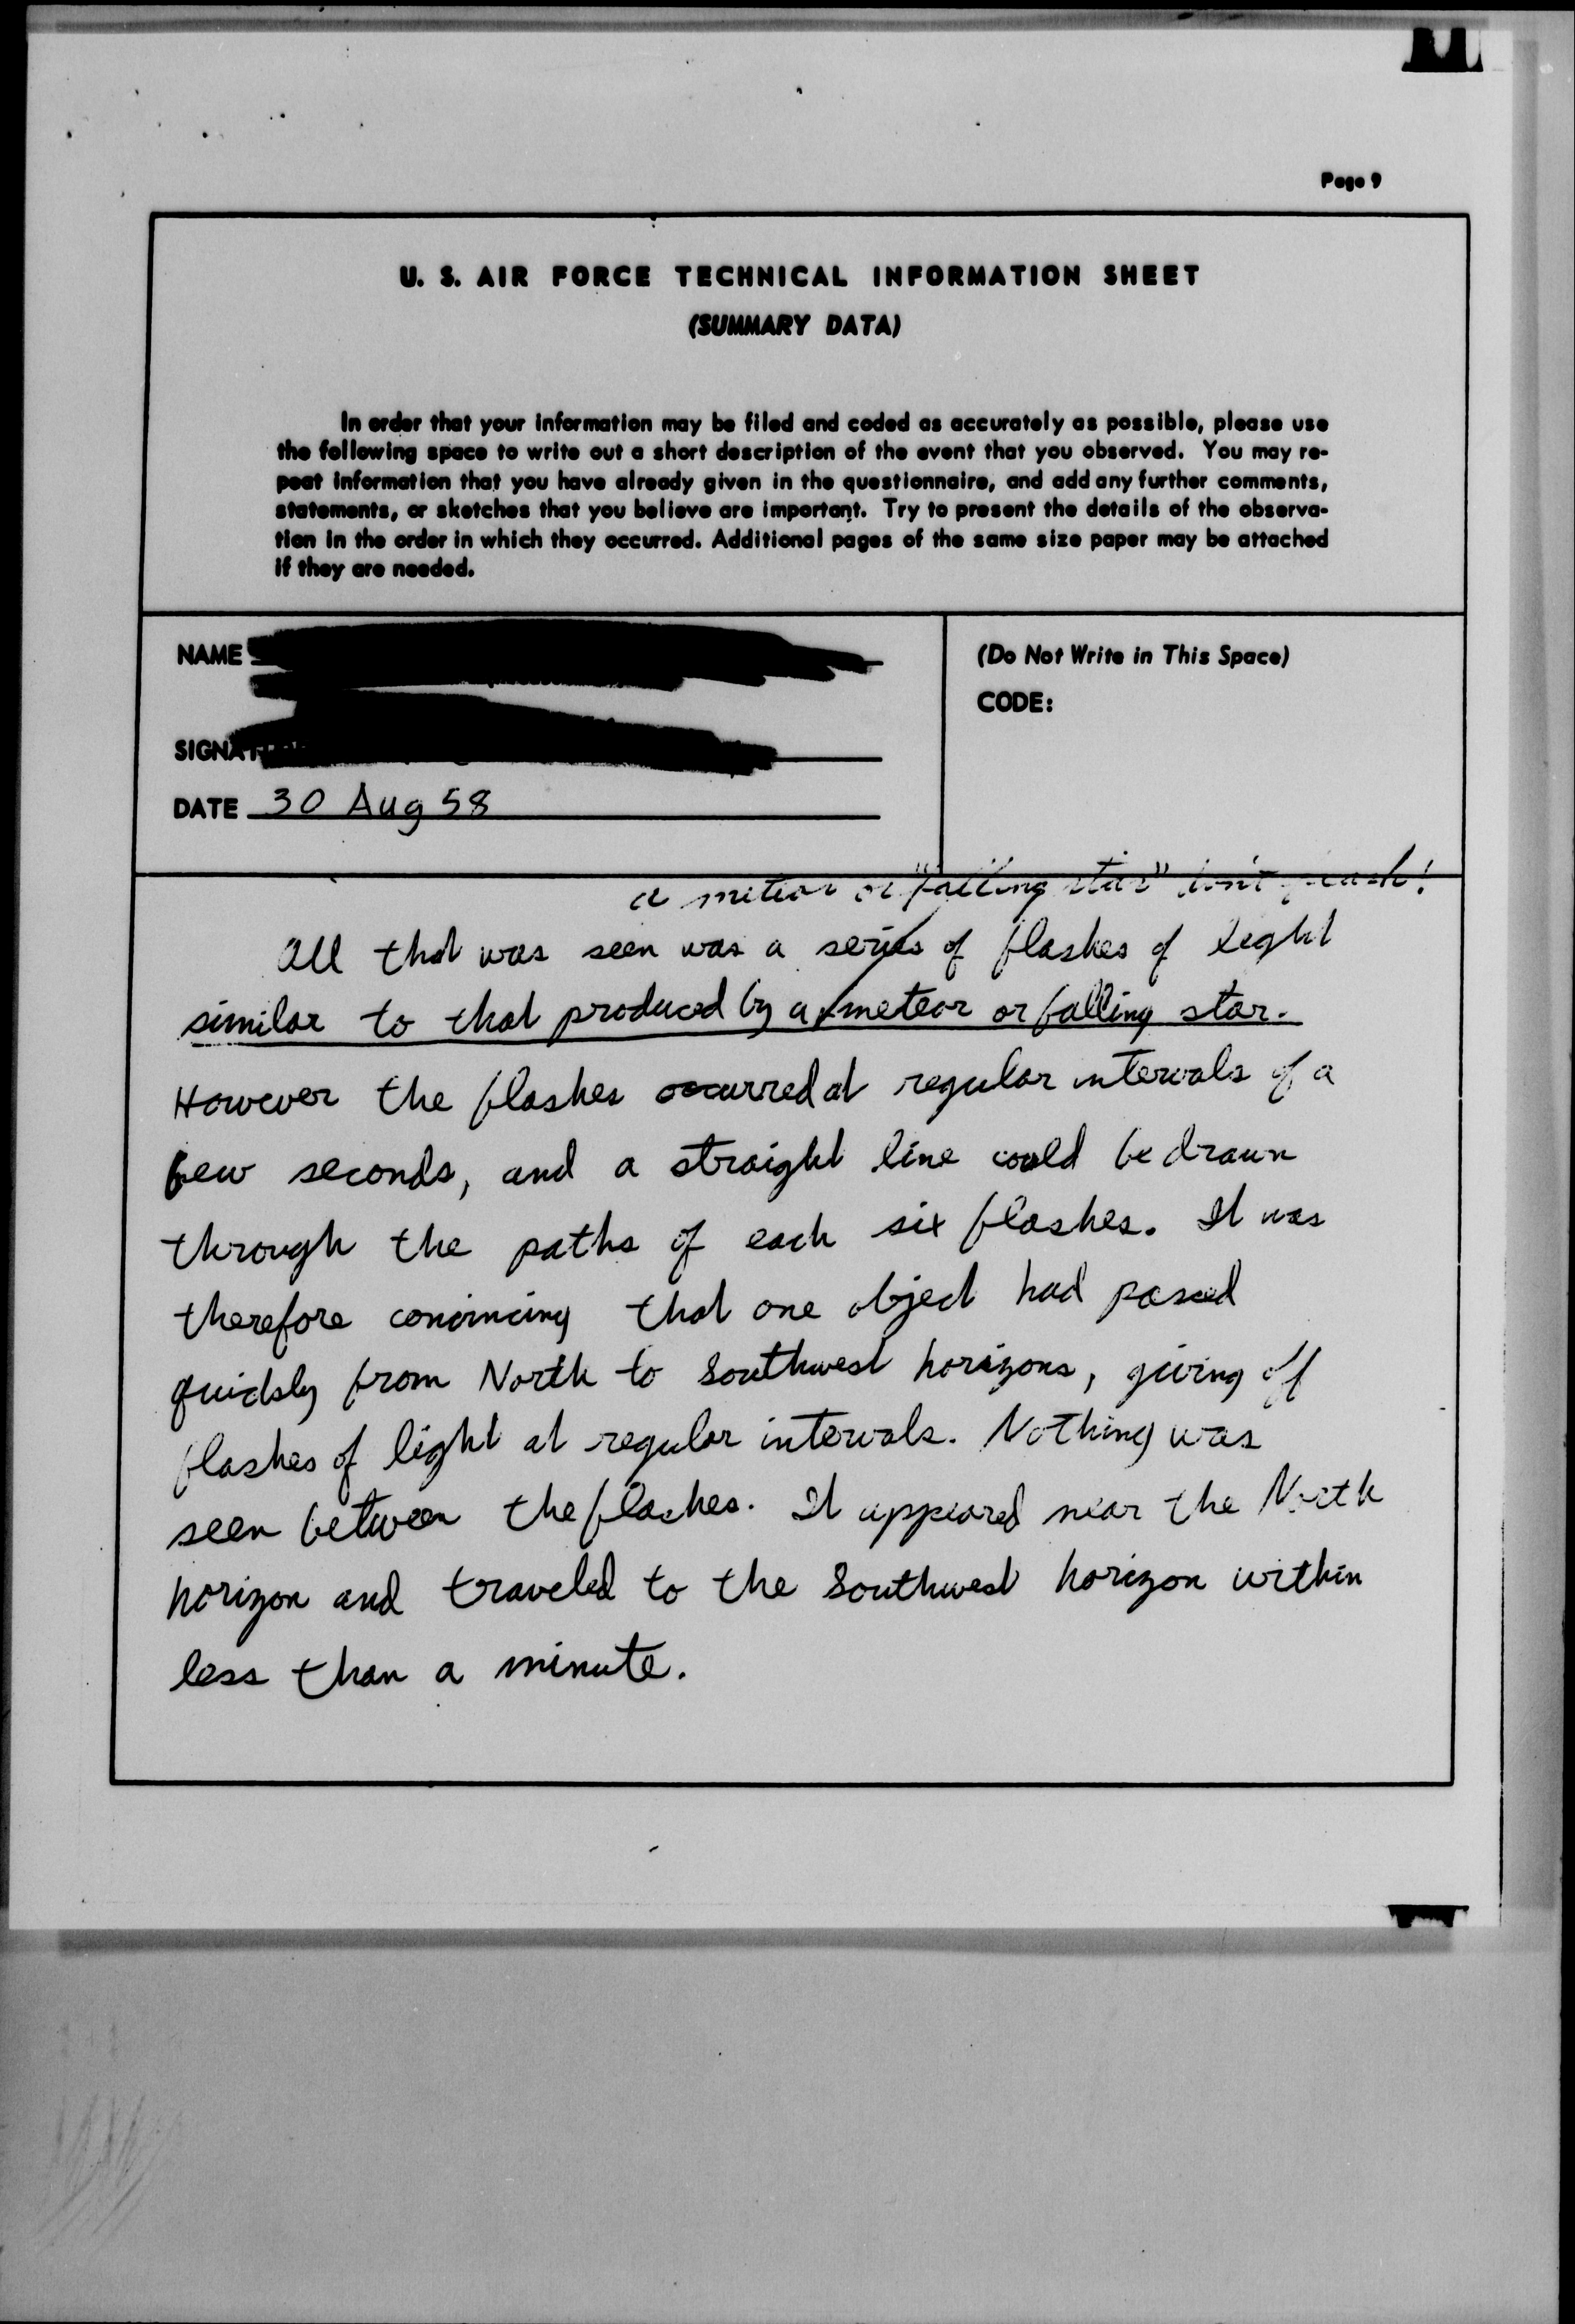 Page 9
U. S. AIR FORCE TECHNICAL INFORMATION SHEET
(SUMMARY DATA)
In order that your information may be filed and coded as accurately as possible, please use
the following space to write out a short description of the event that you observed. You may re-
peat information that you have already given in the questionnaire, and add any further comments,
statements, or sketches that you believe are important. Try to present the details of the observa-
tion in the order in which they occurred. Additional pages of the same size paper may be attached
if they are needed.
NAME
SIGNAT
DATE 30 Aug 58
(Do Not Write in This Space)
CODE:
a meteor or "falling star" don't
All that was seen was a series of flashes of light
similar to that produced by a meteor or falling star.
However the flashes occurred at regular intervals of a
few seconds, and a straight line could be drawn
through the paths of each six flashes. It was
therefore convincing that one object had passed
quickly from North to Southwest horizons, giving off
flashes of light at regular intervals. Nothing was
seen between the flashes. It appeared near the North
horizon and traveled to the Southwest horizon within
less than a minute.